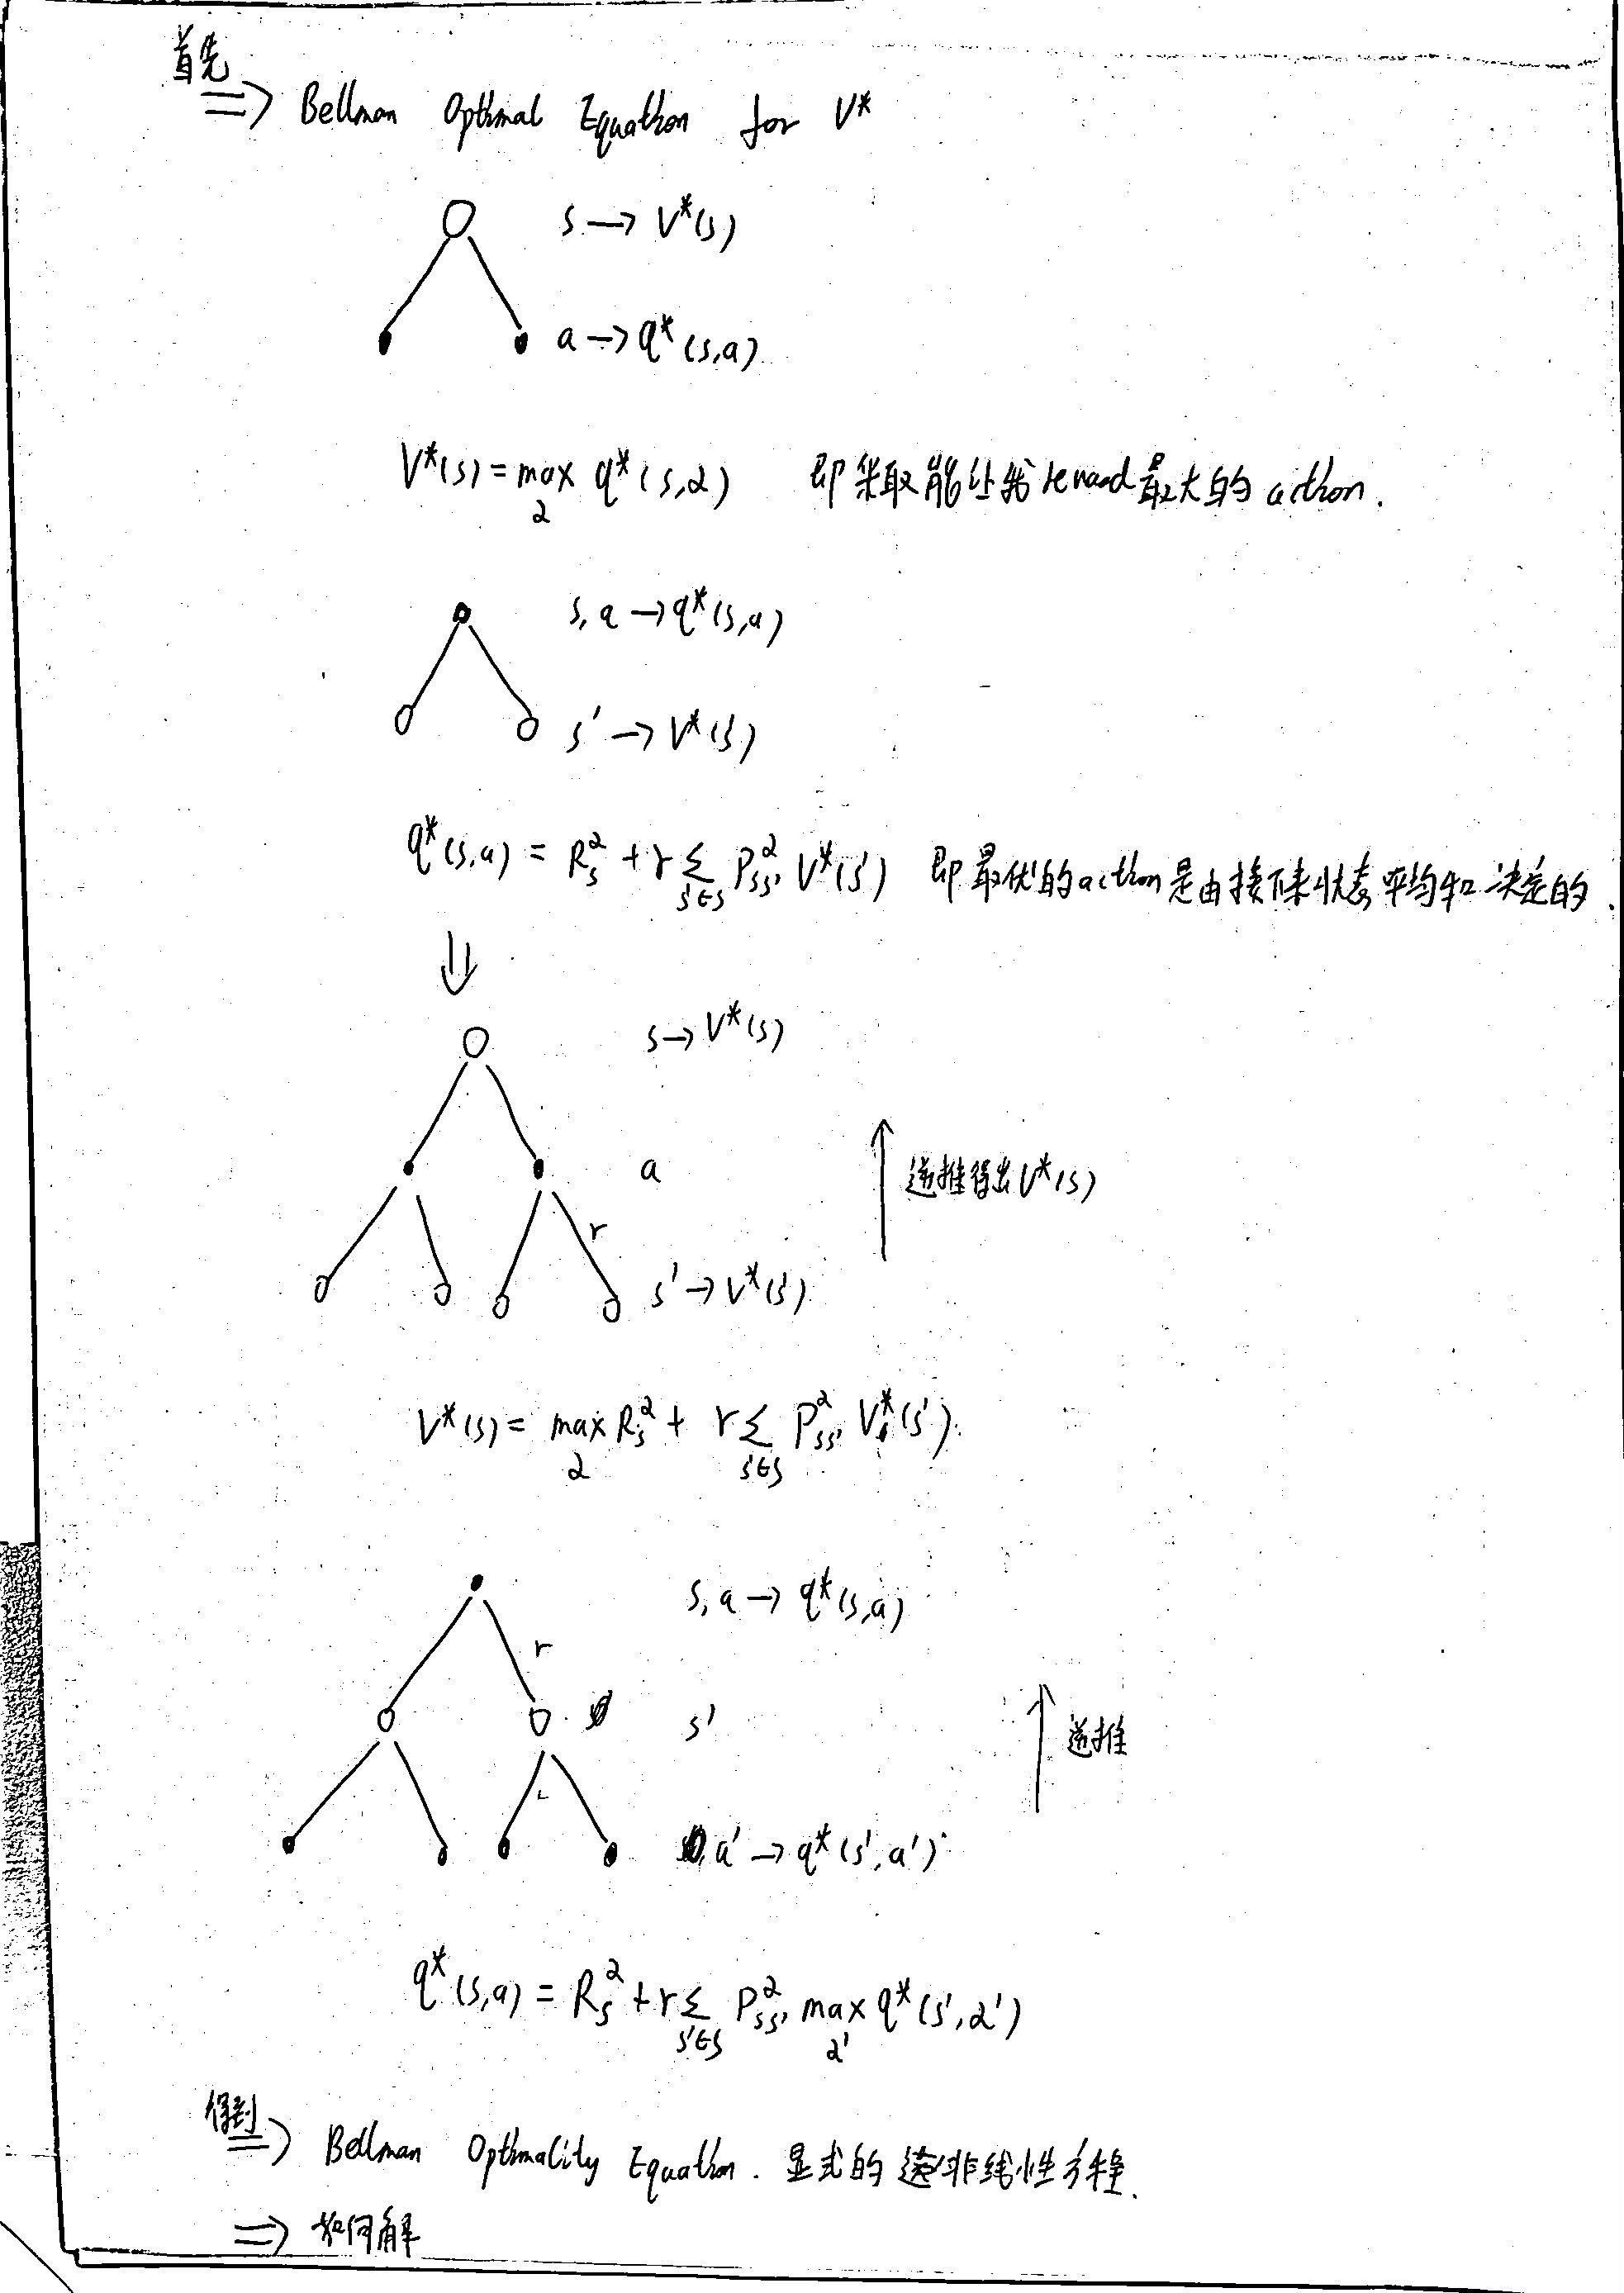 首先
=> Bellman Optimal Equation for V*
s → V*(s)
a → q*(s,a)
V*(s) = max_a q*(s,a) 即采取能让我 reward 最大的 action.
s, a → q*(s,a)
s' → V*(s')
q*(s,a) = R_s^a + γ Σ_{s'∈S} P_{ss'}^a V*(s') 即最优的 action 是由接下来状态平均和决定的.
⇓
s → V*(s)
a
递推得出 V*(s)
r
s' → V*(s')
V*(s) = max_a R_s^a + γ Σ_{s'∈S} P_{ss'}^a V*(s').
s, a → q*(s,a)
r
s'
递推
a' → q*(s',a')
q*(s,a) = R_s^a + γ Σ_{s'∈S} P_{ss'}^a max_{a'} q*(s',a')
得到
=> Bellman Optimality Equation. 显式的 非线性方程.
=> 如何解